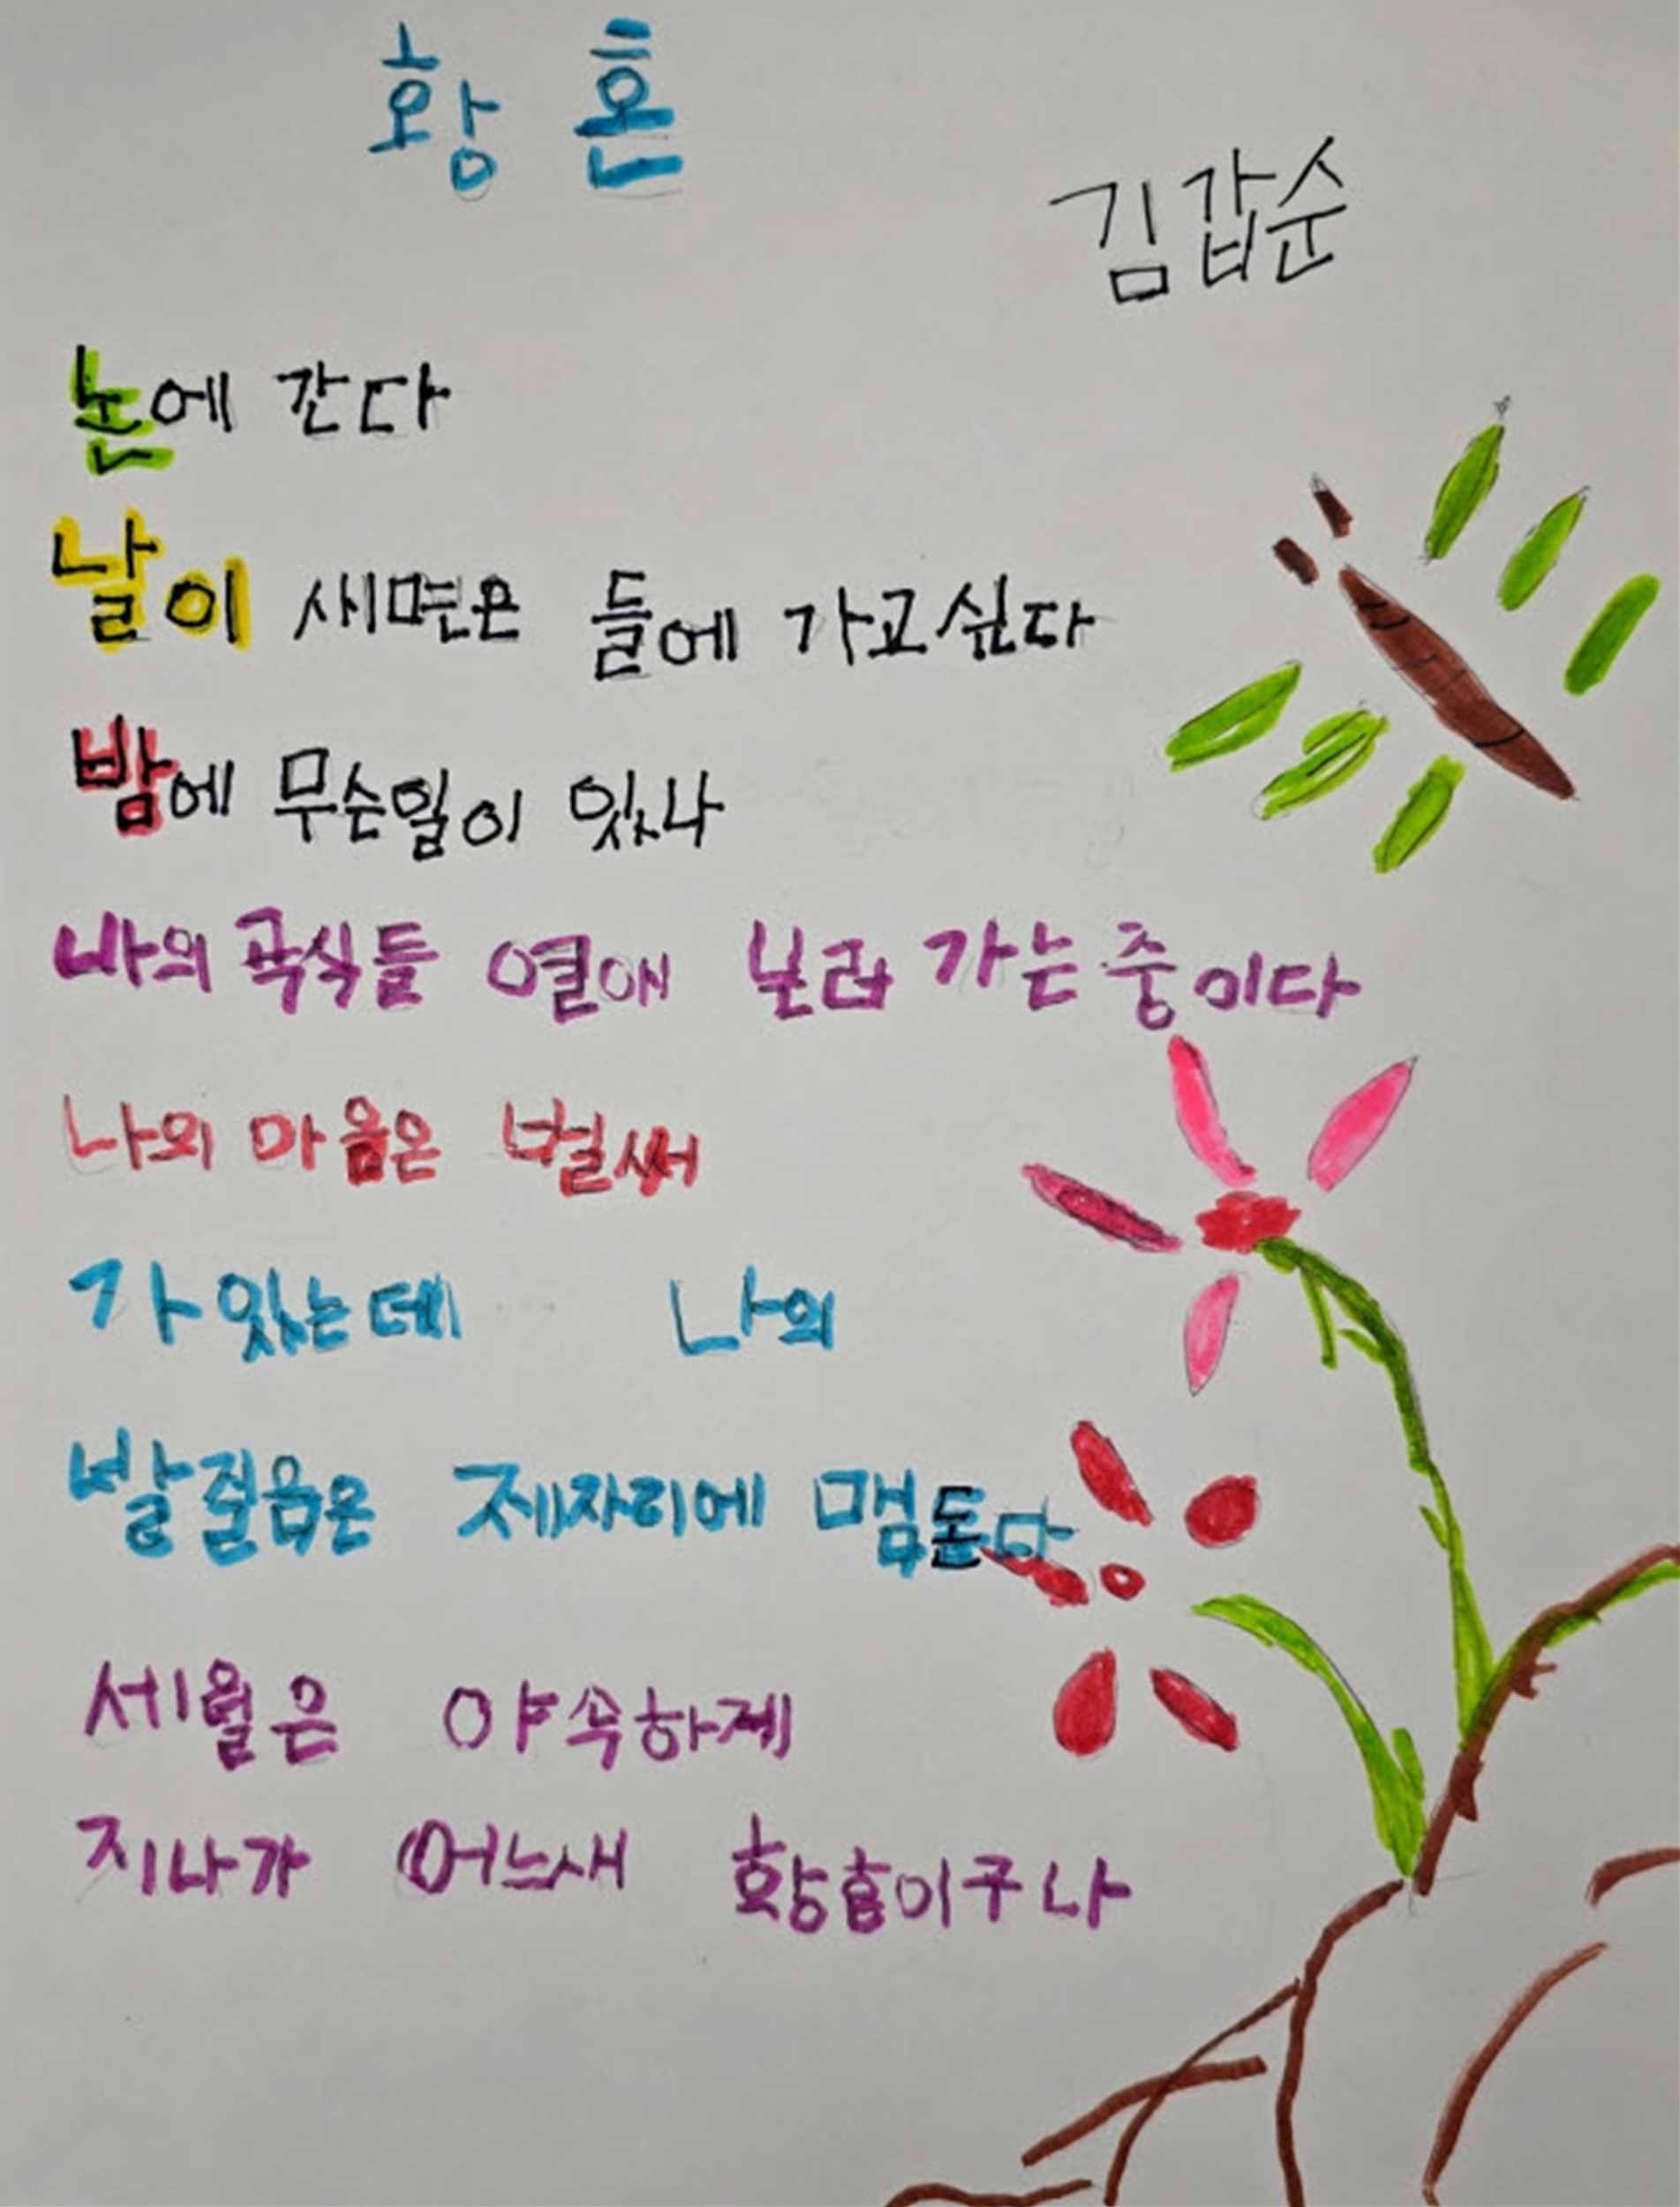 황혼
김갑순
논에 간다
날이 새면은 들에 가고싶다
밤에 무슨일이 있나
나의 곡식들 열애 분러 가는 중이다
나의 마음은 벌써
가있는데 나의
발줄음은 제자리에 맴돈다
세월은 야속하제
지나가 어느새 황혼이구나